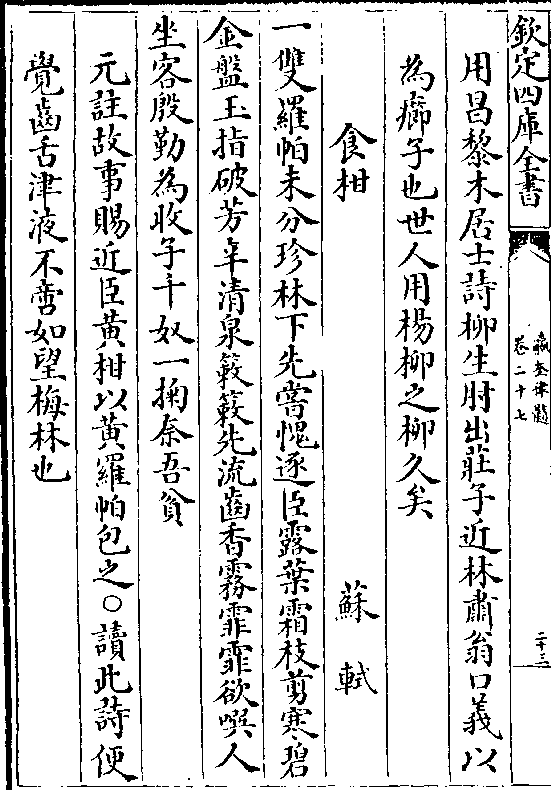 欽定四庫全書
瀛奎律髓
卷二十七
二十三
用昌黎木居士詩柳生肘出莊子近林肅翁口義以
為瘤子也世人用楊柳之柳久矣
食柑
蘇軾
一雙羅帕未分珍林下先嘗愧逐臣露葉霜枝剪寒碧
金盤玉指破芳辛清泉簌簌先流齒香霧霏霏欲噀人
坐客殷勤為收子千奴一掬奈吾貧
元註故事賜近臣黃柑以黃羅帕包之○讀此詩便
覺齒舌津液不啻如望梅林也